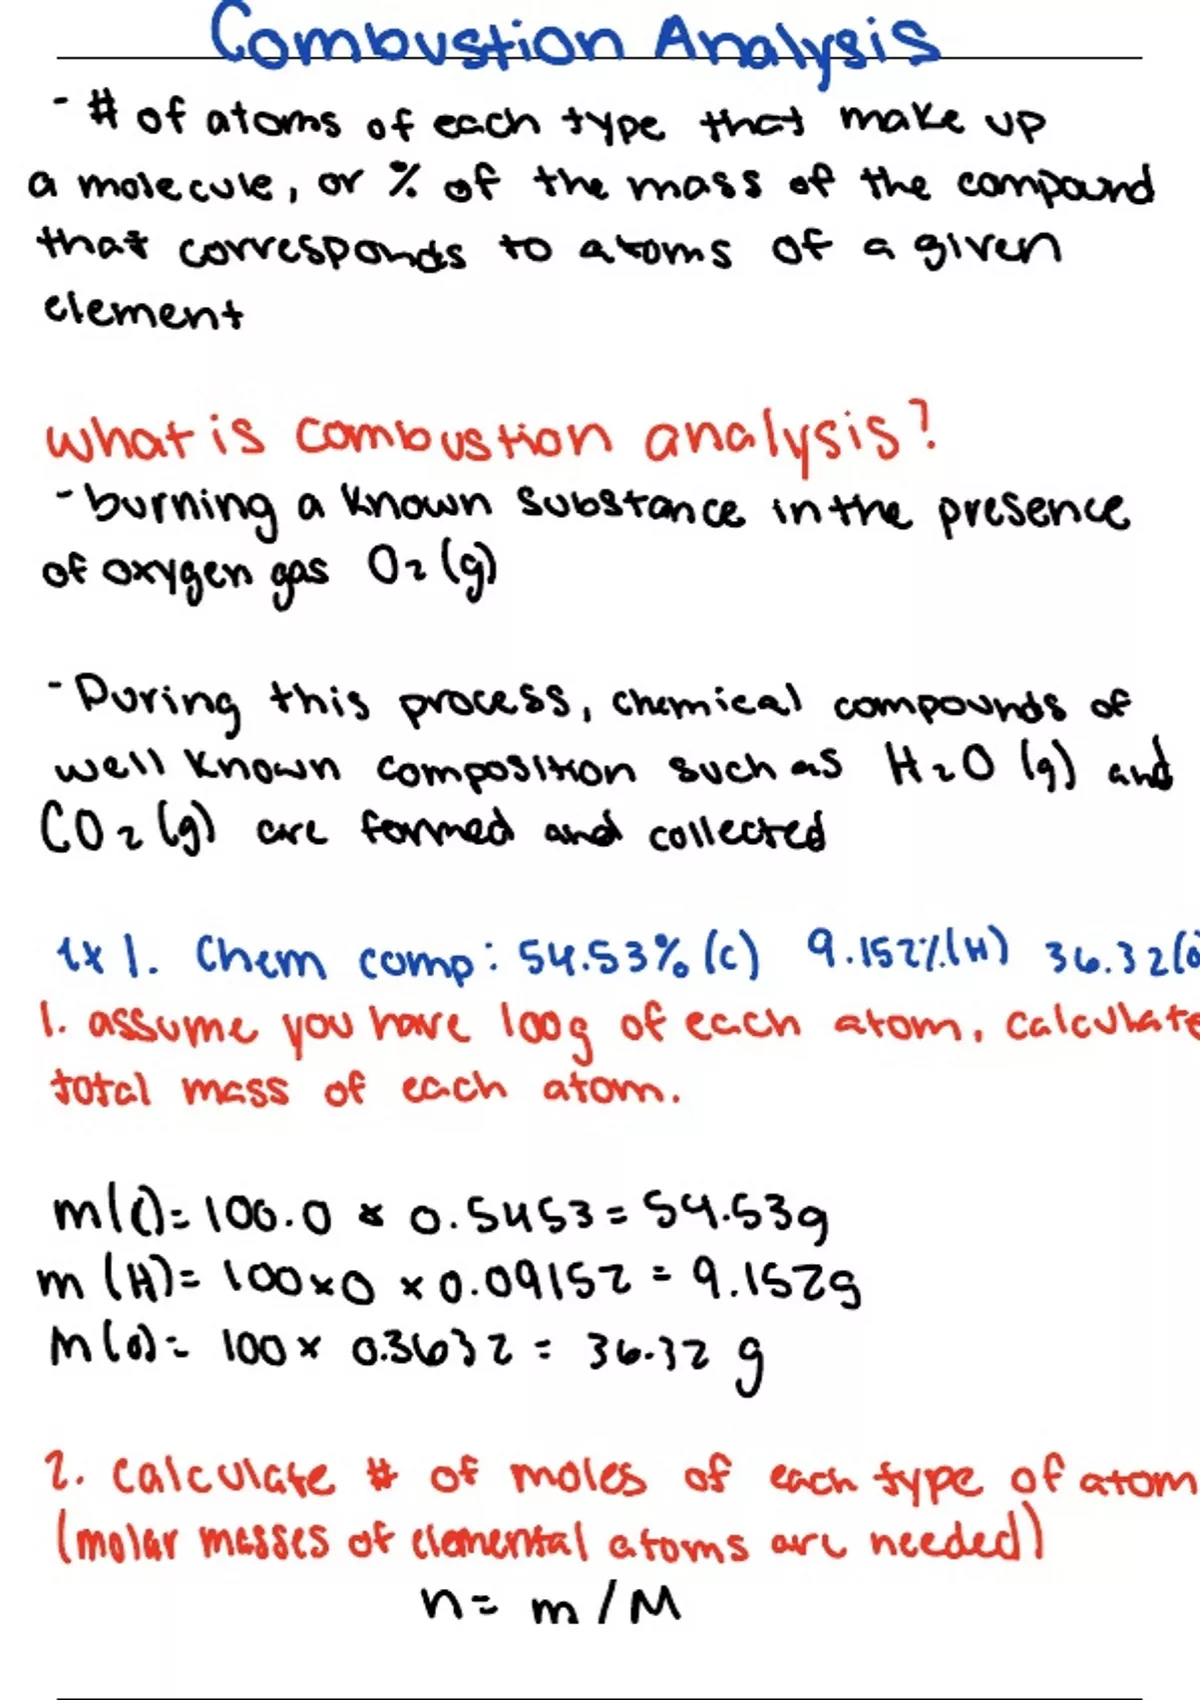 Combustion Analysis
- # of atoms of each type that make up
a molecule, or % of the mass of the compound
that corresponds to atoms of a given
element
what is combustion analysis?
- burning a known substance in the presence
of oxygen gas O2 (g)
- During this process, chemical compounds of
well known composition such as H2O (g) and
CO2 (g) are formed and collected
Ex 1. Chem comp: 54.53% (C) 9.152% (H) 36.32(O
1. assume you have 100g of each atom, calculate
total mass of each atom.
m(C)= 100.0 x 0.5453 = 54.53g
m (H)= 100x0 x 0.09152 = 9.152g
m(O)= 100 x 0.3632 = 36.32 g
2. calculate # of moles of each type of atom
(molar masses of elemental atoms are needed)
n = m / M